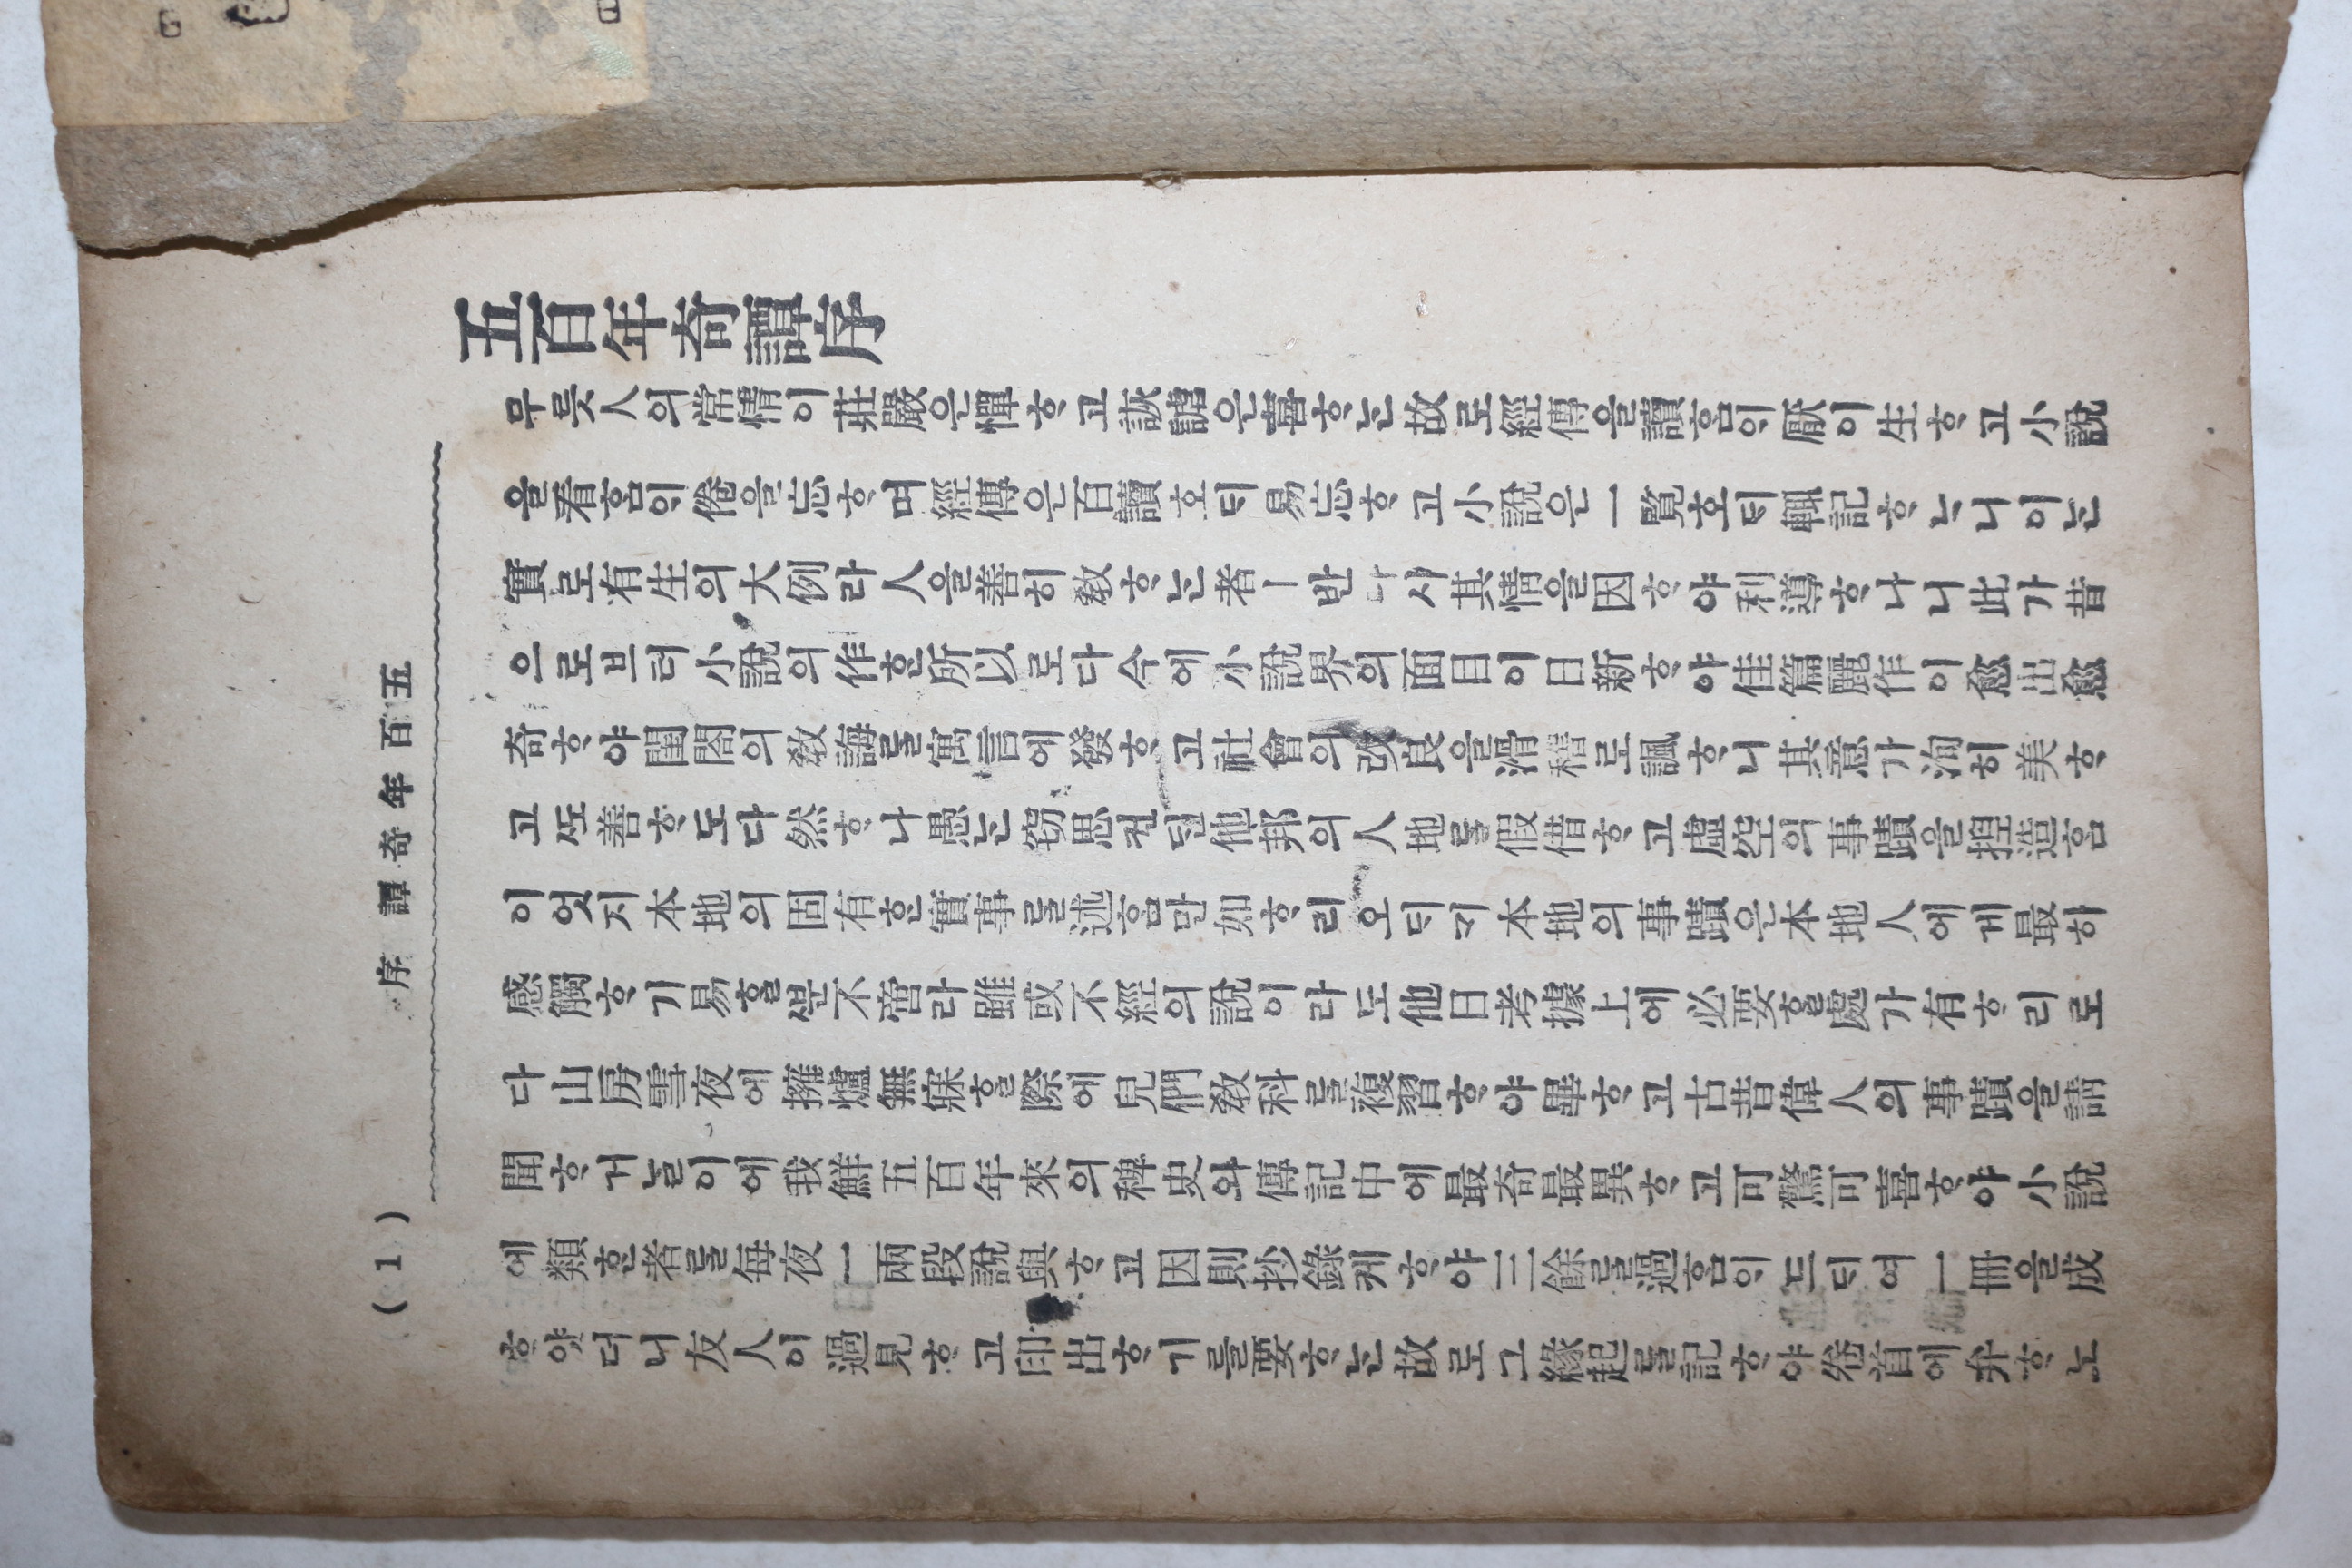 五百年奇譚序
무릇人의常情이莊嚴은憚ᄒᆞ고詼謔은喜ᄒᆞᄂᆞᆫ故로經傳을讀ᄒᆞᆷᄋᆡ厭이生ᄒᆞ고小說
을看ᄒᆞᆷᄋᆡ倦을忘ᄒᆞ며經傳은百讀호ᄃᆡ易忘ᄒᆞ고小說은一覽호ᄃᆡ輒記ᄒᆞᄂᆞ니이ᄂᆞᆫ
實로有生의大例라人을善히敎ᄒᆞᄂᆞᆫ者ㅣ반다시其情을因ᄒᆞ야利導ᄒᆞ나니此가昔
으로브터小說의作ᄒᆞᆫ所以로다今에小說界의面目이日新ᄒᆞ야佳篇麗作이愈出愈
奇ᄒᆞ야閨閤의敎誨ᄅᆞᆯ寓言에發ᄒᆞ고社會의改良을滑稽로諷ᄒᆞ니其意가洵히美ᄒᆞ
고ᄯᅩ善ᄒᆞ도다然ᄒᆞ나愚ᄂᆞᆫ窃思컨ᄃᆡᆫ他邦의人地ᄅᆞᆯ假借ᄒᆞ고虛空의事蹟을揑造ᄒᆞᆷ
이엇지本地의固有ᄒᆞᆫ實事ᄅᆞᆯ述ᄒᆞᆷ만如ᄒᆞ리오ᄃᆡ기本地의事蹟은本地人에게最히
感觸ᄒᆞ기易ᄒᆞᆯᄲᅮᆫ不啻라雖或不經의說이라도他日考據上에必要ᄒᆞᆯ處가有ᄒᆞ리로
다山房雪夜에擁爐無寐ᄒᆞᆯ際에兒們敎科ᄅᆞᆯ複習ᄒᆞ야畢ᄒᆞ고古昔偉人의事蹟을請
聞ᄒᆞ거ᄂᆞᆯ이에我鮮五百年來의稗史와傳記中에最奇最異ᄒᆞ고可驚可喜ᄒᆞ야小說
에類ᄒᆞᆫ者ᄅᆞᆯ每夜一兩段說與ᄒᆞ고因則抄錄케ᄒᆞ야三餘ᄅᆞᆯ過ᄒᆞᆷᄋᆡ드ᄃᆡ여一冊을成
ᄒᆞ얏더니友人이過見ᄒᆞ고印出ᄒᆞ기를要ᄒᆞᄂᆞᆫ故로그緣起ᄅᆞᆯ記ᄒᆞ야卷首에弁ᄒᆞ노
五百年奇譚 序
(1)